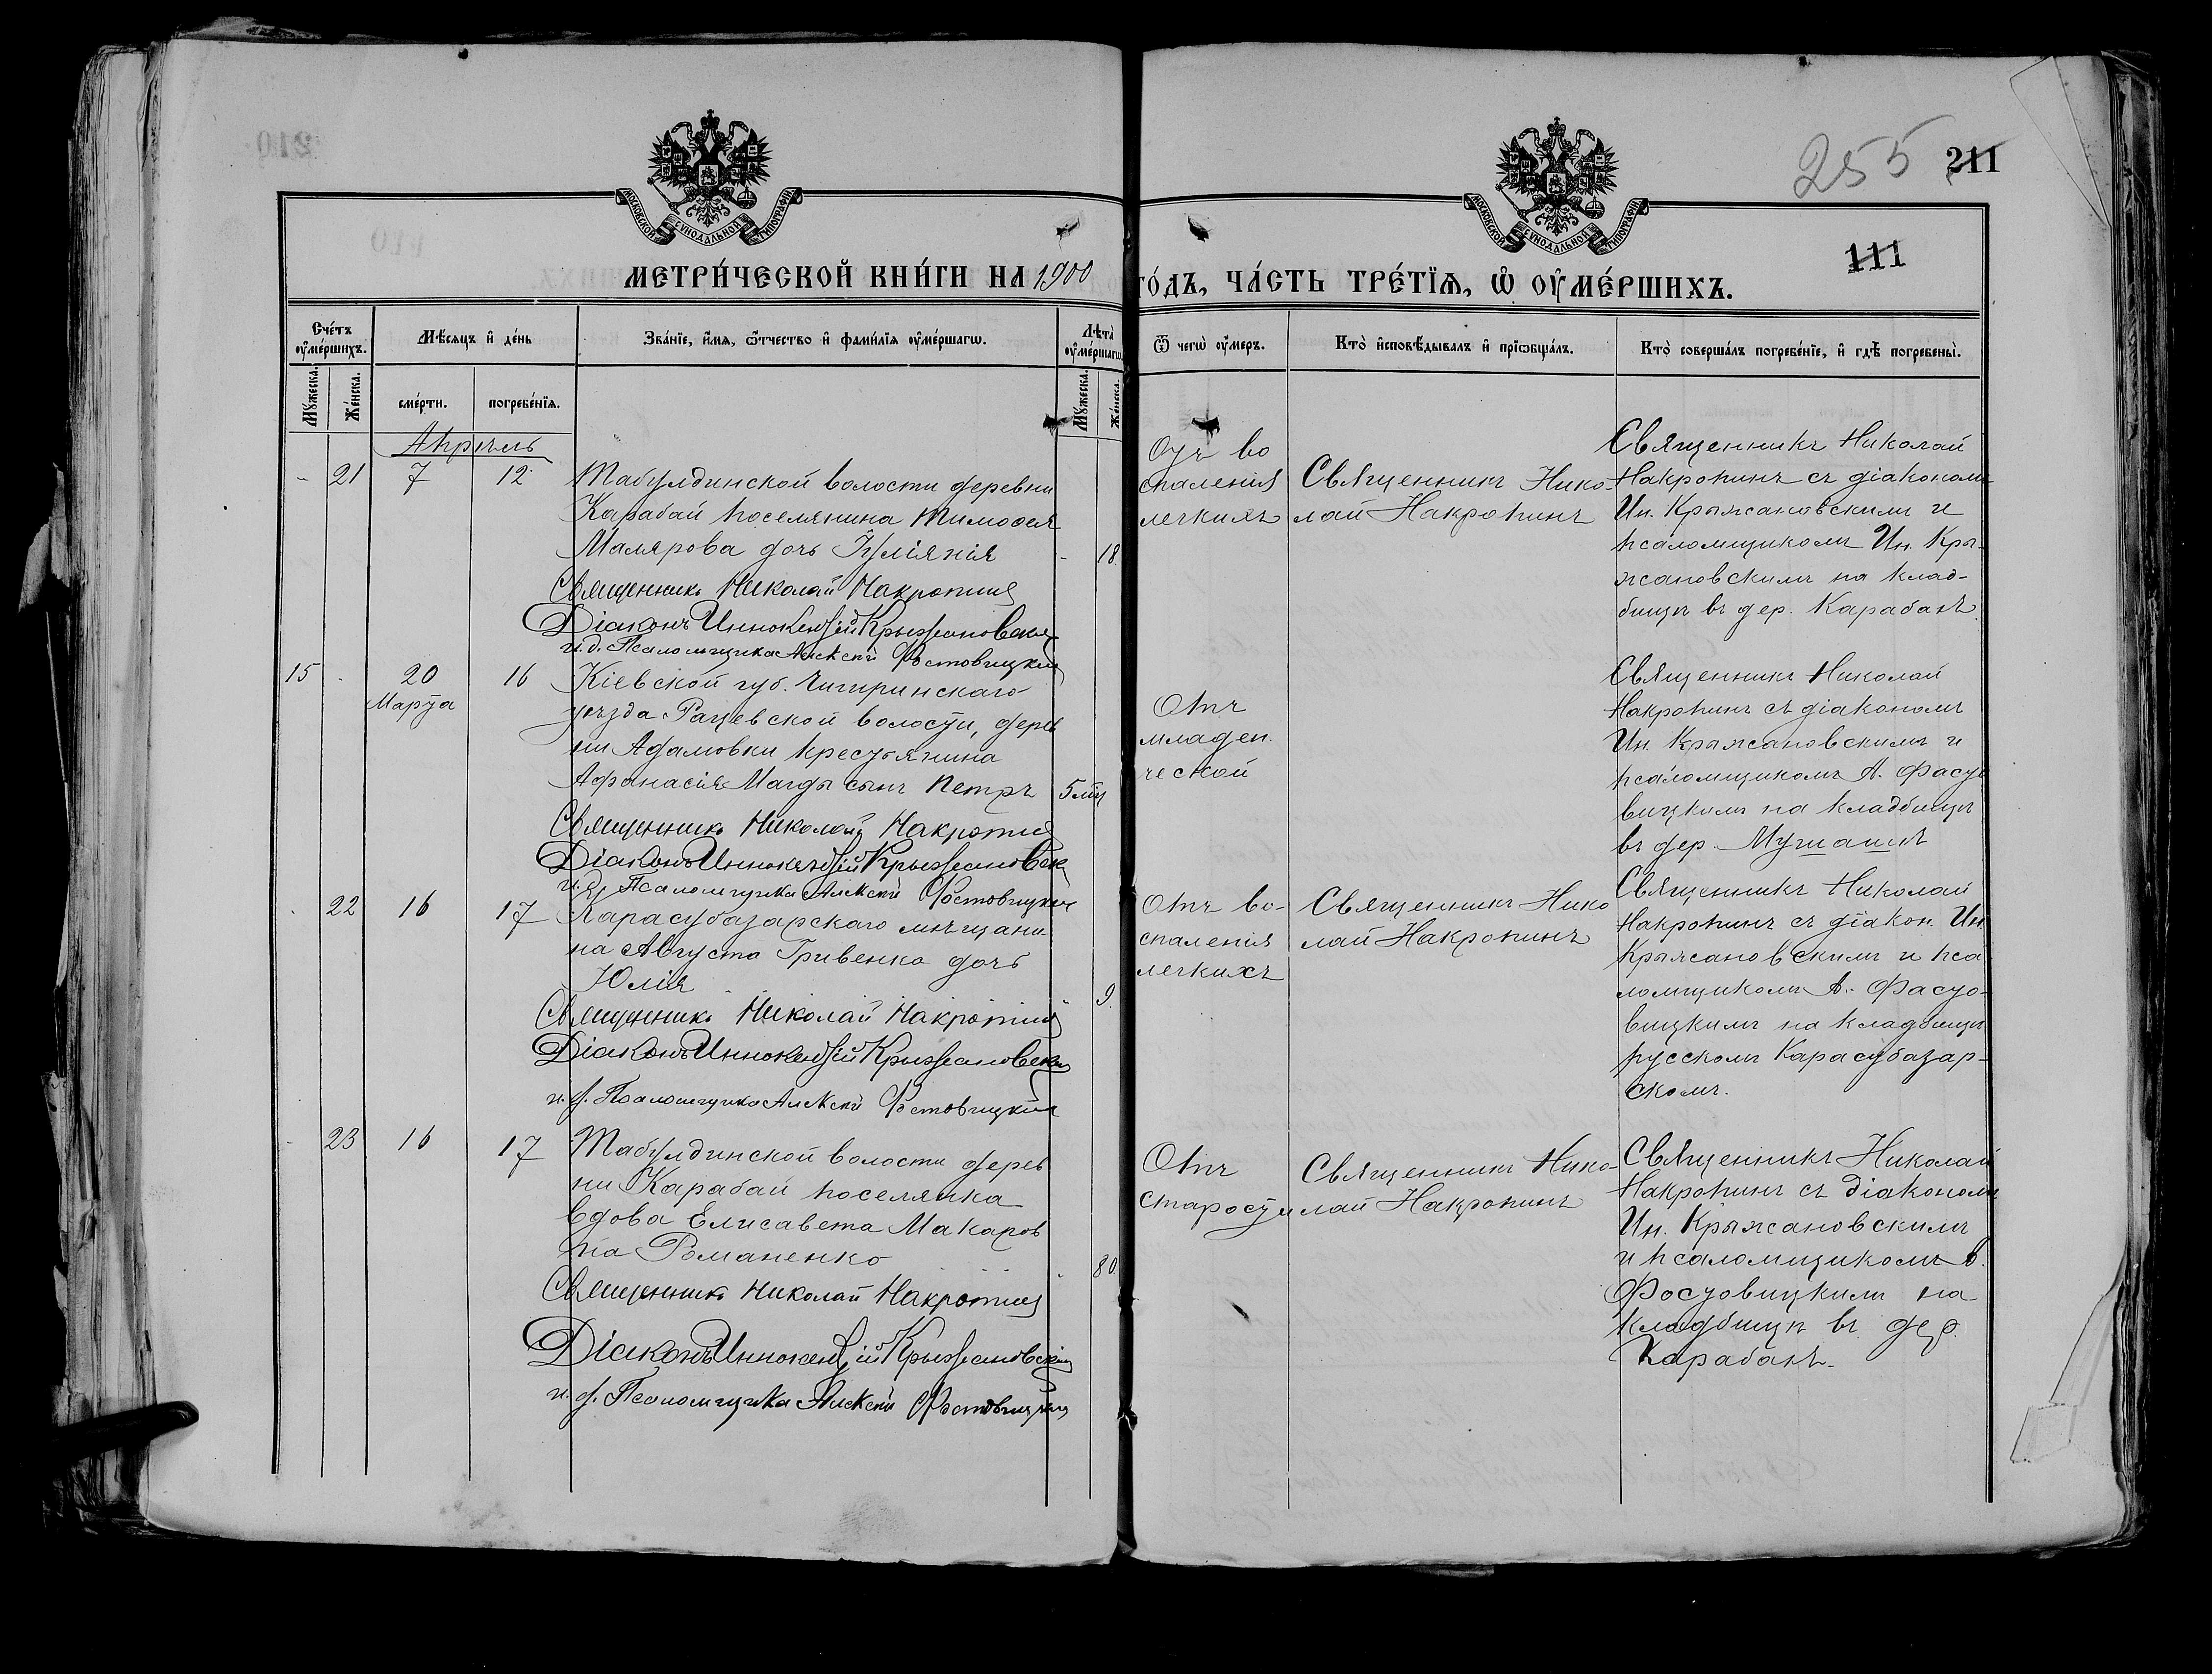 255 211
111
МОСКОВСКОЙ СѴНОДАЛЬНОЙ ТИПОГРАФІИ
МОСКОВСКОЙ СѴНОДАЛЬНОЙ ТИПОГРАФІИ
МЕТРИ́ЧЕСКОЙ КНИ́ГИ НА 1900 ГО́ДЪ, ЧА́СТЬ ТРЕ́ТЇѦ, Ѡ҆ ОУ҆МЕ́РШИХЪ.
Сче́тъ оу҆ме́ршихъ.
Мѣ́сѧцъ и҆ де́нь
Зва́нїе, и҆́мѧ, ѻ҆́тчество и҆ фами́лїѧ оу҆ме́ршагѡ.
Лѣ́та оу҆ме́ршагѡ
Ѿ чегѡ̀ оу҆́меръ.
Кто̀ и҆сповѣ́дывалъ и҆ прїѡбща́лъ.
Кто̀ соверша́лъ погребе́нїе, и҆ гдѣ̀ погребены̀.
Мꙋ́жеска.
Же́нска.
сме́рти.
погребе́нїѧ.
Мꙋ́жеска.
Же́нска.
Апрѣль
- 21 7 12
Табулдинской волости деревни
Карабай поселянина Тимоѳея
Малярова дочь Іуліянія
- 18
Священникъ Николай Накропинъ
Діаконъ Иннокентій Крыжановскій
и.д. Псаломщика Алексѣй Фостовицкій
Отъ во
спаленія
легкихъ
Священникъ Нико-
лай Накропинъ
Священникъ Николай
Накропинъ съ діакономъ
Ин. Крыжановскимъ и
псаломщикомъ Ин. Кры-
жановскимъ на клад-
бищѣ въ дер. Карабаѣ.
15 - 20 Марта 16
Кіевской губ. Чигиринскаго
уѣзда Рацевской волости, дерев
ни Адамовки крестьянина
Афанасія Магды сынъ Петръ
5 мѣц
Священникъ Николай Накропинъ
Діаконъ Иннокентій Крыжановскій
и.д. Псаломщика Алексѣй Фостовицкій
Отъ
младен.
ческой
Священникъ Николай
Накропинъ съ діакономъ
Ин. Крыжановскимъ и
псаломщикомъ А. Фасто
вицкомъ на кладбищѣ
въ дер.
- 22 16 17
Карасубазарскаго мѣщани
на Августа Гривенко дочь
Юлія
9.
Священникъ Николай Накропинъ
Діаконъ Иннокентій Крыжановскій
и.д. Псаломщика Алексѣй Фостовицкій
Отъ во-
спаленія
легкихъ
Священникъ Нико
лай Накропинъ
Священникъ Николай
Накропинъ съ діакон. Ин.
Крыжановскимъ и пса
ломщикомъ А. Фасто-
вицкимъ на кладбищѣ
русскомъ Карасубазар-
скомъ.
- 23 16 17
Табулдинской волости дерев
ни Карабай поселянка
вдова Елисавета Макаров
на Романенко
80.
Священникъ Николай Накропинъ
Діаконъ Иннокентій Крыжановскій
и.д. Псаломщика Алексѣй Фостовицкій
Отъ
старости
Священникъ Нико-
лай Накропинъ
Священникъ Николай
Накропинъ съ діакономъ
Ин. Крыжановскимъ
и псаломщикомъ
Фостовицкимъ на
кладбищѣ въ дер.
Карабаѣ.